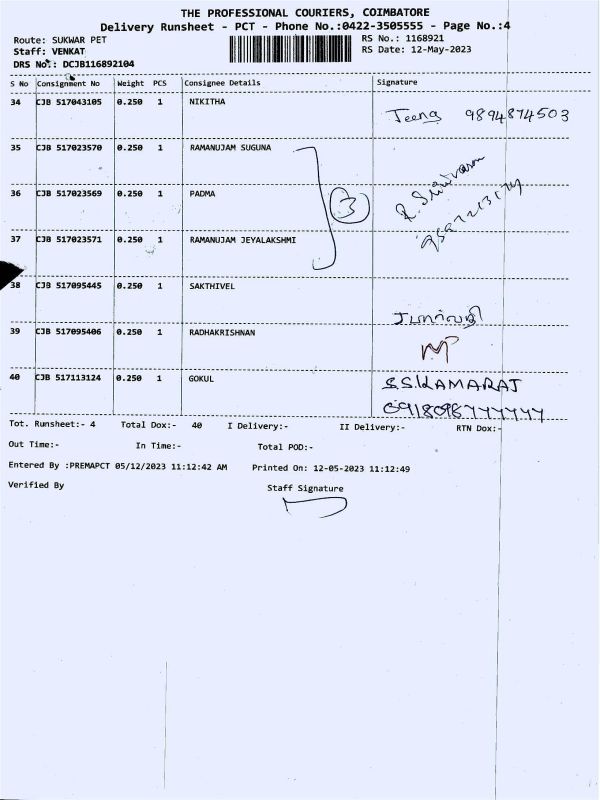 THE PROFESSIONAL COURIERS, COIMBATORE
Delivery Runsheet - PCT - Phone No.:0422-3505555 - Page No.:4
Route: SUKWAR PET RS No.: 1168921
Staff: VENKAT RS Date: 12-May-2023
DRS No.: DCJB116892104
S No Consignment No Weight PCS Consignee Details Signature
34 CJB 517043105 0.250 1 NIKITHA
Teena 9894874503
35 CJB 517023570 0.250 1 RAMANUJAM SUGUNA
36 CJB 517023569 0.250 1 PADMA
3
R. Srinivasan
37 CJB 517023571 0.250 1 RAMANUJAM JEYALAKSHMI
38 CJB 517095445 0.250 1 SAKTHIVEL
39 CJB 517095406 0.250 1 RADHAKRISHNAN
40 CJB 517113124 0.250 1 GOKUL
S.S.KAMARAJ
Tot. Runsheet:- 4 Total Dox:- 40 I Delivery:- II Delivery:- RTN Dox:-
Out Time:- In Time:- Total POD:-
Entered By :PREMAPCT 05/12/2023 11:12:42 AM Printed On: 12-05-2023 11:12:49
Verified By Staff Signature